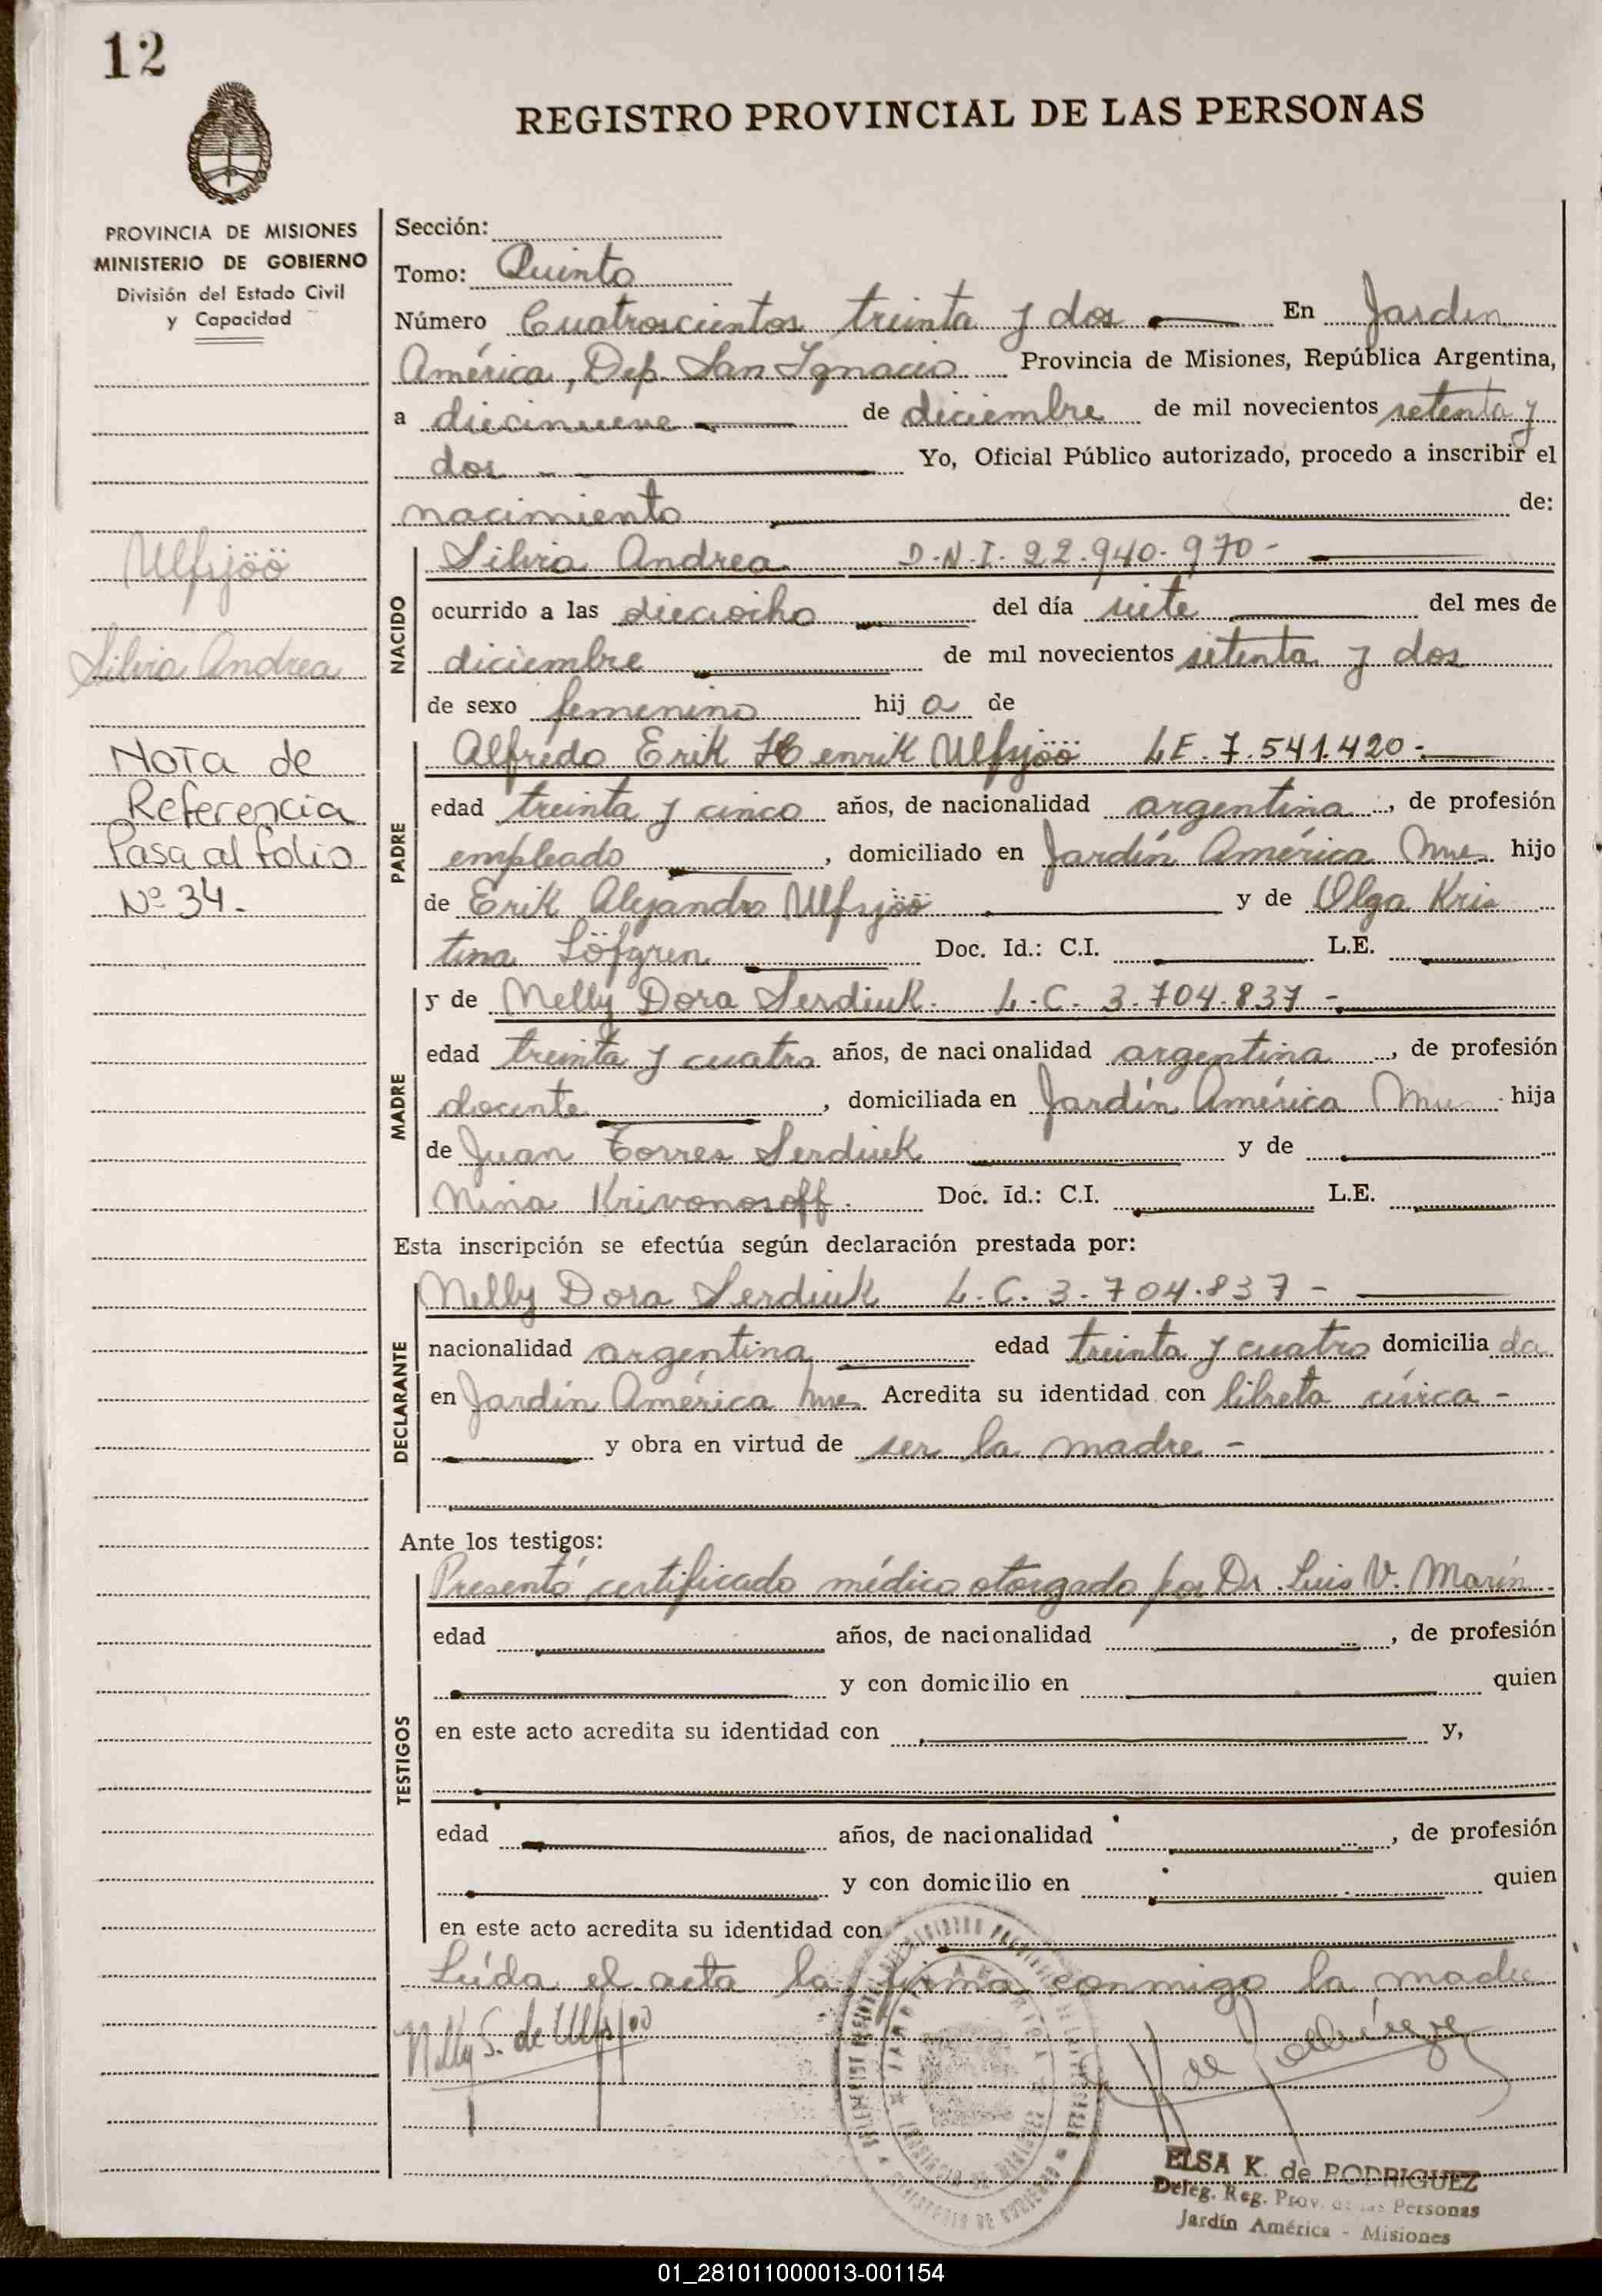 12
REGISTRO PROVINCIAL DE LAS PERSONAS
PROVINCIA DE MISIONES
MINISTERIO DE GOBIERNO
División del Estado Civil
y Capacidad
Ulfsjöö
Silvia Andrea
Nota de
Referencia
Pasa al folio
Nº 34.
Sección:
Tomo: Quinto
Número Cuatroscientos treinta y dos En Jardín
América, Dep. San Ignacio Provincia de Misiones, República Argentina,
a diecinueve de diciembre de mil novecientos setenta y
dos Yo, Oficial Público autorizado, procedo a inscribir el
nacimiento de:
NACIDO
Silvia Andrea D.N.I. 22.940.970-
ocurrido a las dieciocho del día siete del mes de
diciembre de mil novecientos setenta y dos
de sexo femenino hij a de
PADRE
Alfredo Erik Henrik Ulfsjöö L.E. 7.541.420-
edad treinta y cinco años, de nacionalidad argentina, de profesión
empleado, domiciliado en Jardín América Mnes. hijo
de Erik Alejandro Ulfsjöö y de Olga Kris
tina Löfgren Doc. Id.: C.I. L.E.
MADRE
y de Nelly Dora Serdiuk. L.C. 3.704.837-
edad treinta y cuatro años, de nacionalidad argentina, de profesión
docente, domiciliada en Jardín América hija
de Juan Torres Serdiuk y de
Nina Krivonosoff. Doc. Id.: C.I. L.E.
Esta inscripción se efectúa según declaración prestada por:
DECLARANTE
Nelly Dora Serdiuk L.C. 3.704.837-
nacionalidad argentina edad treinta y cuatro domicilia da
en Jardín América Mnes. Acredita su identidad con libreta cívica -
y obra en virtud de ser la madre -
Ante los testigos:
TESTIGOS
Presentó certificado médico otorgado por Dr. Luis V. Marín
edad años, de nacionalidad , de profesión
y con domicilio en quien
en este acto acredita su identidad con y,
edad años, de nacionalidad , de profesión
y con domicilio en quien
en este acto acredita su identidad con
Leída el acta la firma conmigo la madre
Nelly S. de Ulfsjöö
ELSA K. de RODRIGUEZ
Deleg. Reg. Prov. de las Personas
Jardín América - Misiones
01_281011000013-001154